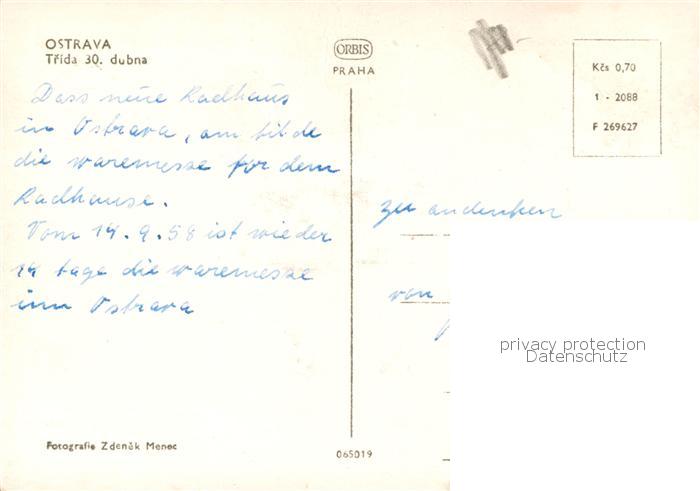 OSTRAVA
Třída 30. dubna
ORBIS
PRAHA
Kčs 0,70
1 - 2088
F 269627
Dass neue Radhaus
in Ostrava, am bilde
die waremesse for dem
Radhause.
Vom 14. 9. 58 ist wieder
14 tage die waremesse
inn Ostrava
zu andenken
von
privacy protection
Datenschutz
Fotografie Zdeněk Menec
065019